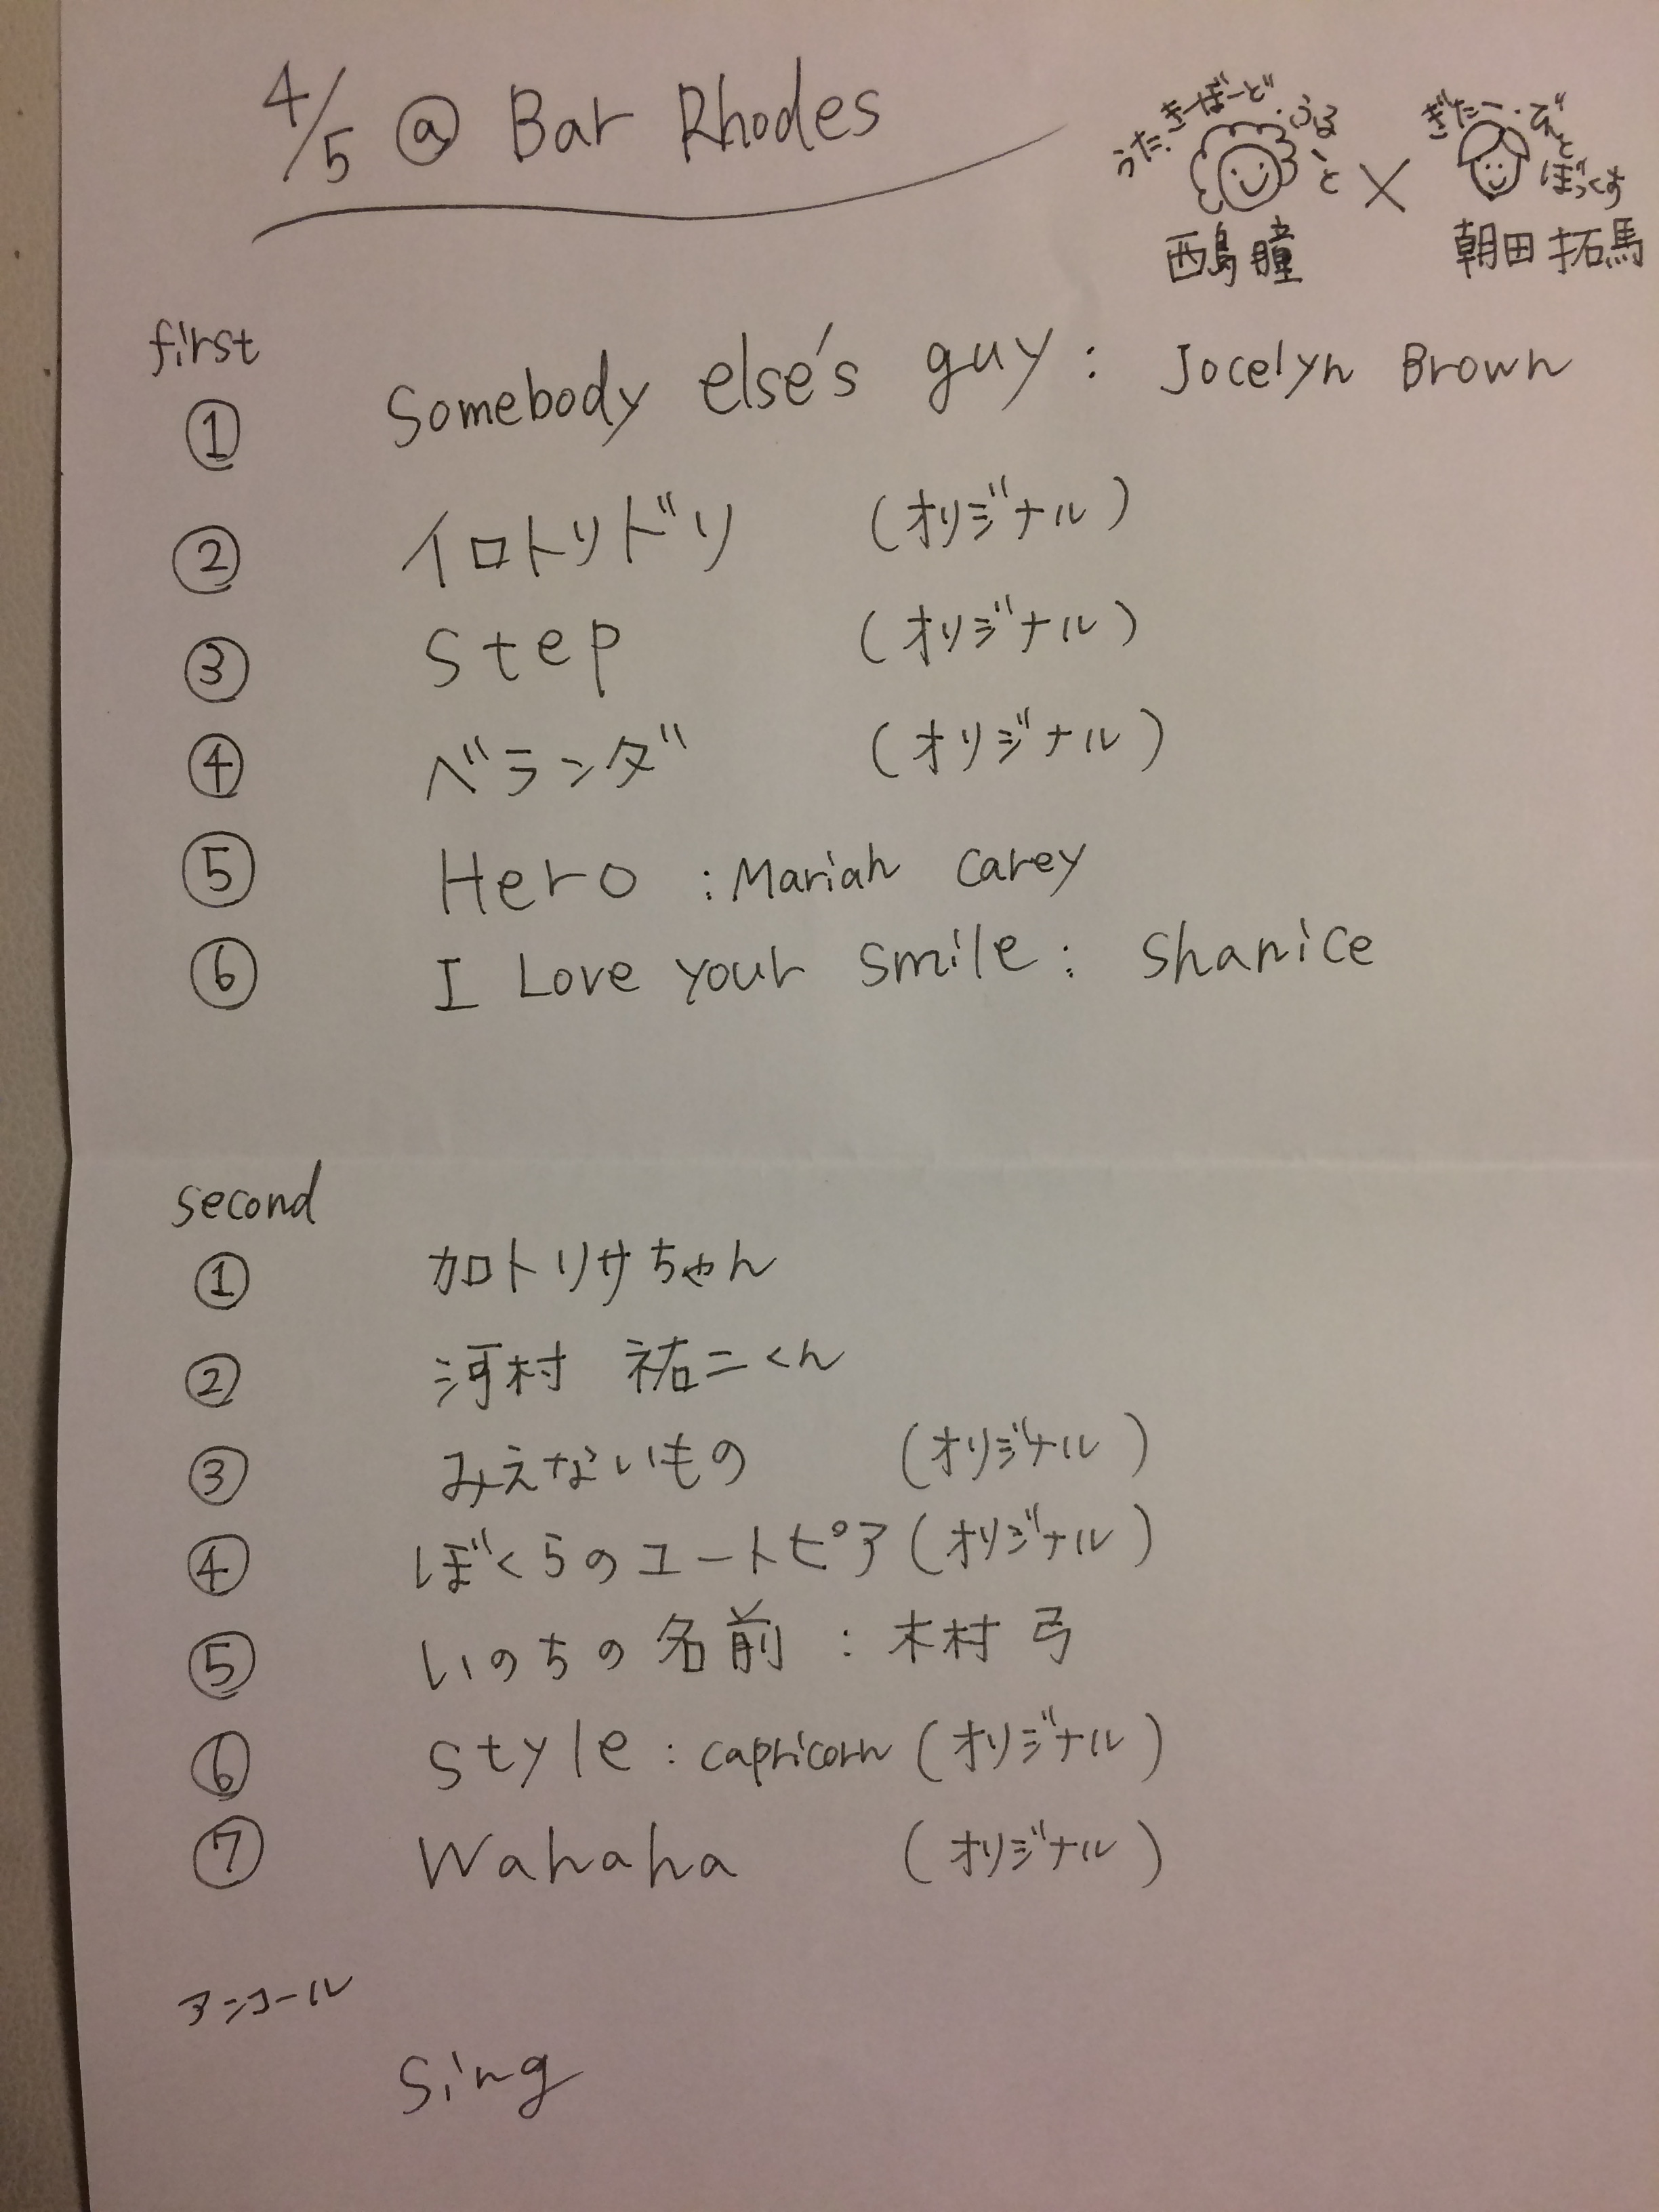 4/5 @ Bar Rhodes
うた・きーぼーど・ふるーと
西島瞳
×
ぎたー・びーとぼっくす
朝田拓馬
first
① Somebody else's guy : Jocelyn Brown
② イロトリドリ (オリジナル)
③ Step (オリジナル)
④ ベランダ (オリジナル)
⑤ Hero : Mariah Carey
⑥ I Love your smile : Shanice
second
① カロトリサちゃん
② 河村 祐二くん
③ みえないもの (オリジナル)
④ ぼくらのユートピア (オリジナル)
⑤ いのちの名前 : 木村 弓
⑥ style : capricorn (オリジナル)
⑦ Wahaha (オリジナル)
アンコール
Sing